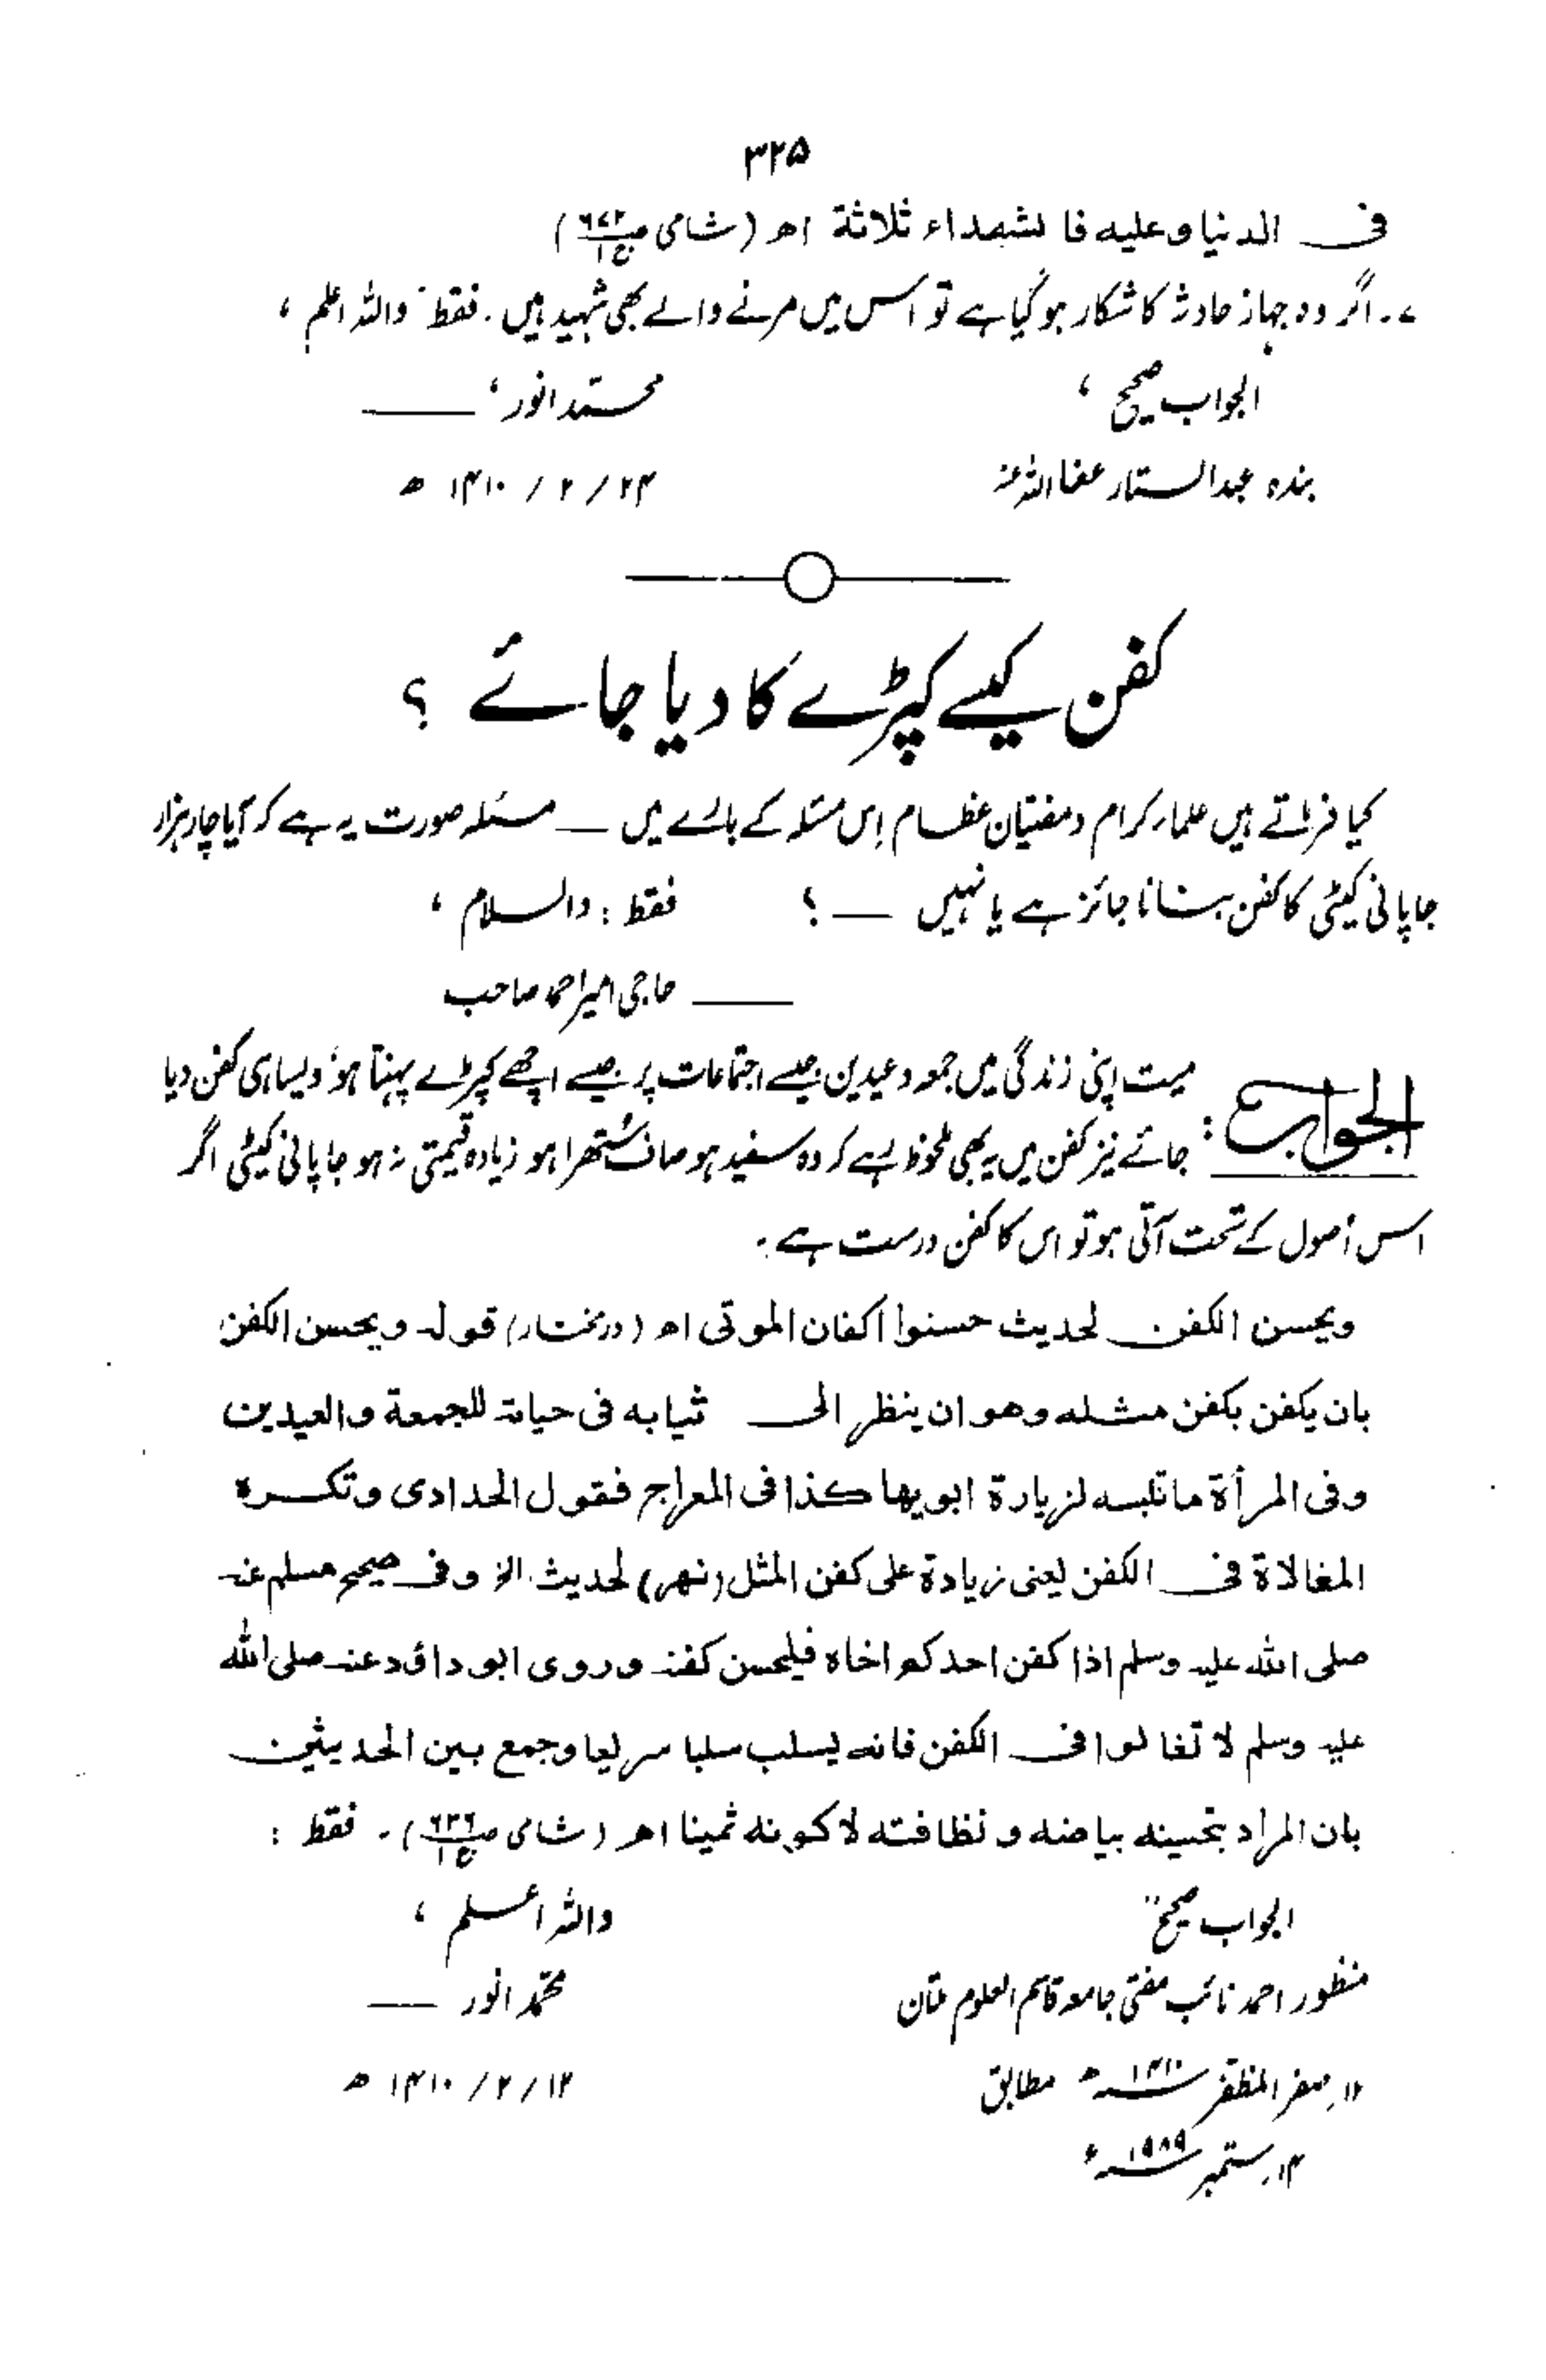 ۳۲۵
فی الدنیا وعلیہ فالشھداء ثلاثة اھ (شامی ص۶۷۲ ج۱)
۷۔ اگر وہ جہاز حادثہ کا شکار ہوگیا ہے تو اس میں مرنے والے بھی شہید ہیں۔ فقط واللہ اعلم ،
الجواب صحیح ، محمد انور ،
بندہ عبدالستار عفا اللہ عنہ ۲۴ / ۲ / ۱۴۱۰ ھ
کفن کیسے کپڑے کا دیا جائے ؟
کیا فرماتے ہیں علماء کرام و مفتیان عظام اِس مسئلہ کے بارے میں — مسئلہ صورت یہ ہے کہ آیا چار ہزار
جاپانی کیٹی کا کفن بنانا جائز ہے یا نہیں — ؟ فقط : والسلام ،
— حاجی امیر احمد صاحب
الجواب : میت اپنی زندگی میں جمعہ و عیدین جیسے اجتماعات پر جیسے اچھے کپڑے پہنتا ہو ویسا ہی کفن دیا
جائے نیز کفن میں یہ بھی ملحوظ رہے کہ وہ سفید ہو صاف سُتھرا ہو زیادہ قیمتی نہ ہو جاپانی کیٹی اگر
اس اُصول کے تحت آتی ہو تو اس کا کفن درست ہے۔
ویحسن الکفن لحدیث حسنوا اکفان الموتی اھ (درمختار) قولہ ویحسن الکفن
بان یکفن بکفن مثلہ وھو ان ینظر الی ثیابہ فی حیاتہ للجمعة والعیدین
وفی المرأة ما تلبسہ لزیارة ابویھا کذا فی المعراج فقول الحدادی وتکرہ
المغالاة فی الکفن یعنی زیادة علی کفن المثل (نھر) لحدیث الخ وفی صحیح مسلم عنہ
صلی اللہ علیہ وسلم اذا کفن احدکم اخاہ فلیحسن کفنہ وروی ابوداؤد عنہ صلی اللہ
علیہ وسلم لا تغالوا فی الکفن فانہ یسلب سلبا سریعا وجمع بین الحدیثین
بان المراد بتحسینہ بیاضہ ونظافتہ لا کونہ ثمینا اھ (شامی ص۶۳۶ ج۱)۔ فقط :
الجواب صحیح واللہ اعلم ،
منظور احمد نائب مفتی جامعہ قاسم العلوم ملتان محمد انور —
۱۲؍ صفر المظفر ۱۴۱۰ھ مطابق ۱۲ / ۲ / ۱۴۱۰ ھ
۱۴؍ ستمبر ۱۹۸۹ء